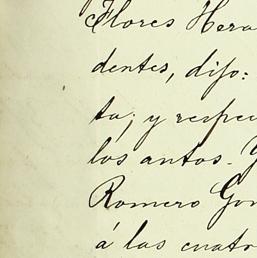 Flores Hera
dentes, dijo:
ta; y respec
los autos. Y
Romero Gon
á las cuatr